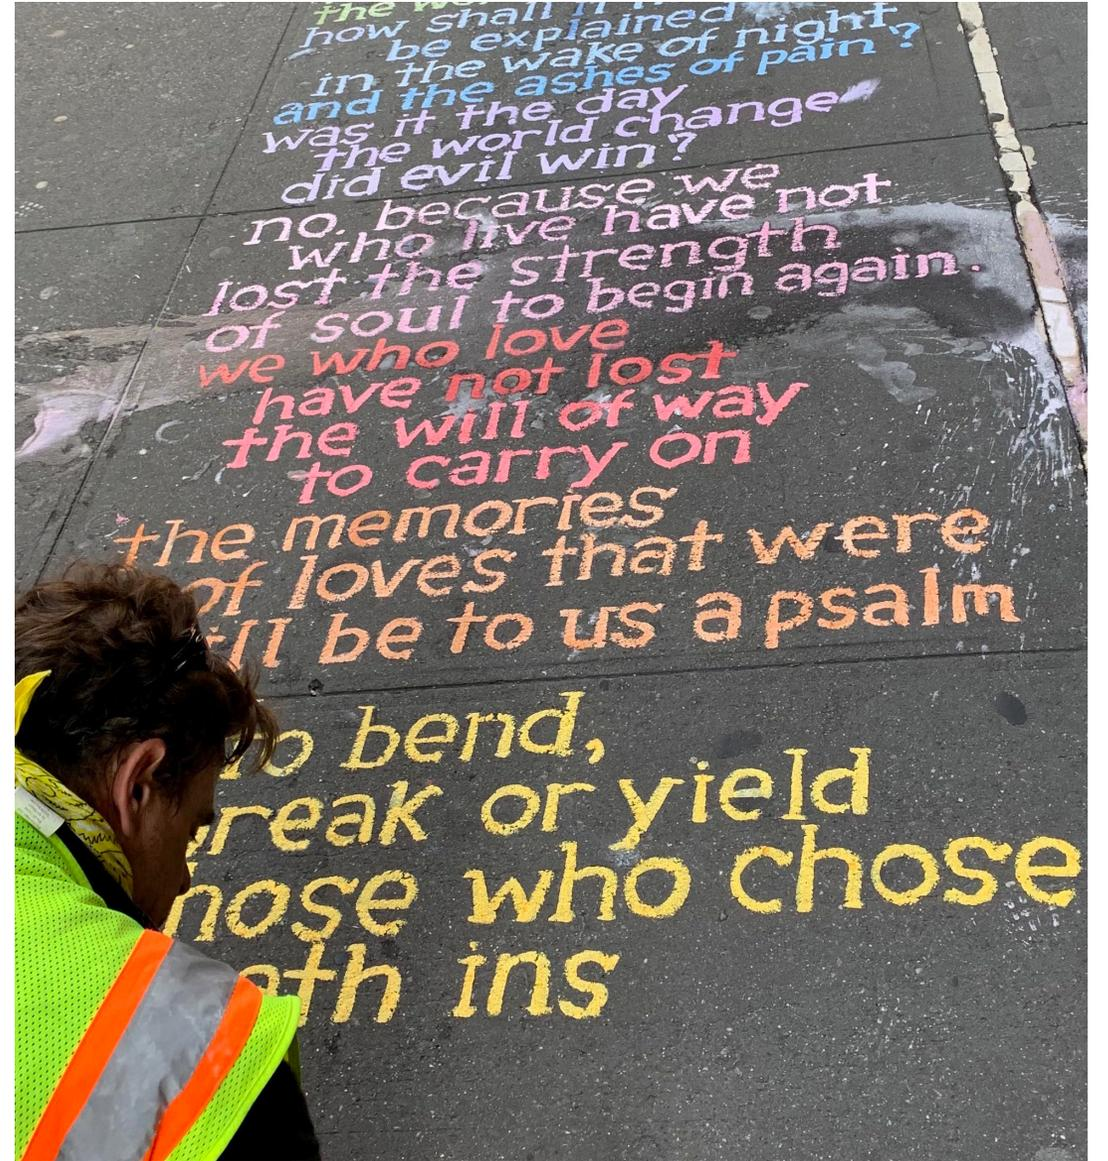 the
how shall it
be explained
in the wake of night,
and the ashes of pain?
was it the day
the world change
did evil win?
no. because we
who live have not
lost the strength
of soul to begin again.
we who love
have not lost
the will of way
to carry on
the memories
of loves that were
be to us a psalm
bend,
or yield
who chose
ins